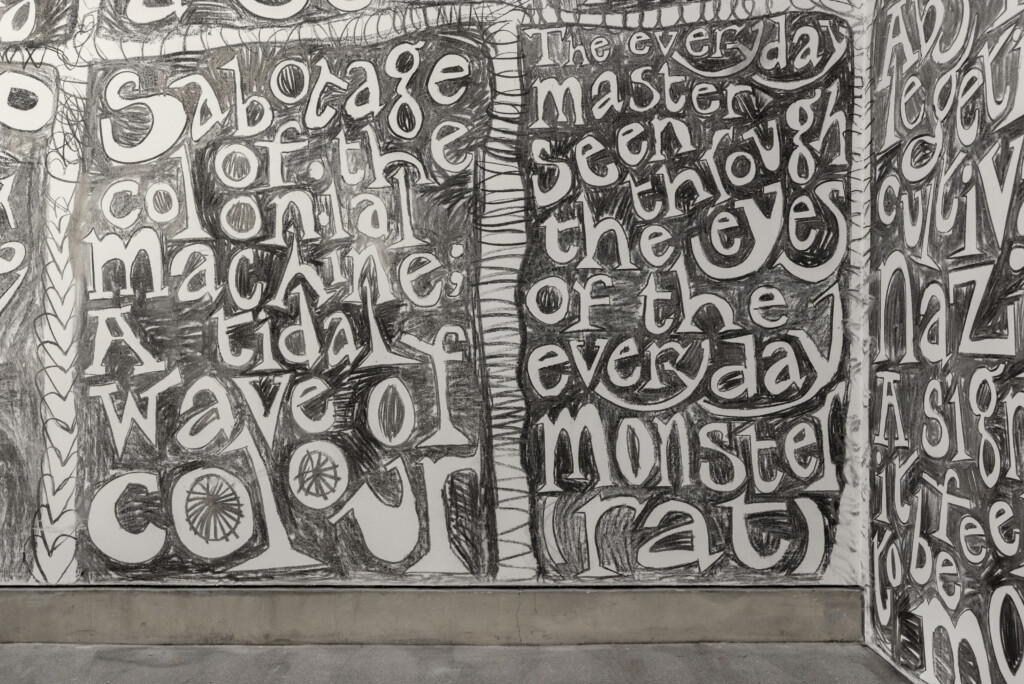 Sabotage
of.the
colonial
machine;
A tidal
wave of
colour
The everyday
master
seen
through
the eyes
of the
everyday
monster
(rat)
Nazi
A sign
it
to be